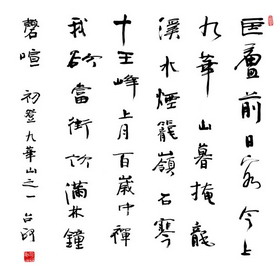 匡廬前日客今上
九華山暮掩龍
溪水煙籠嶺石寒
十王峰上月百歲中禪
我欲當滿林鐘
磬喧 初登九華山之一